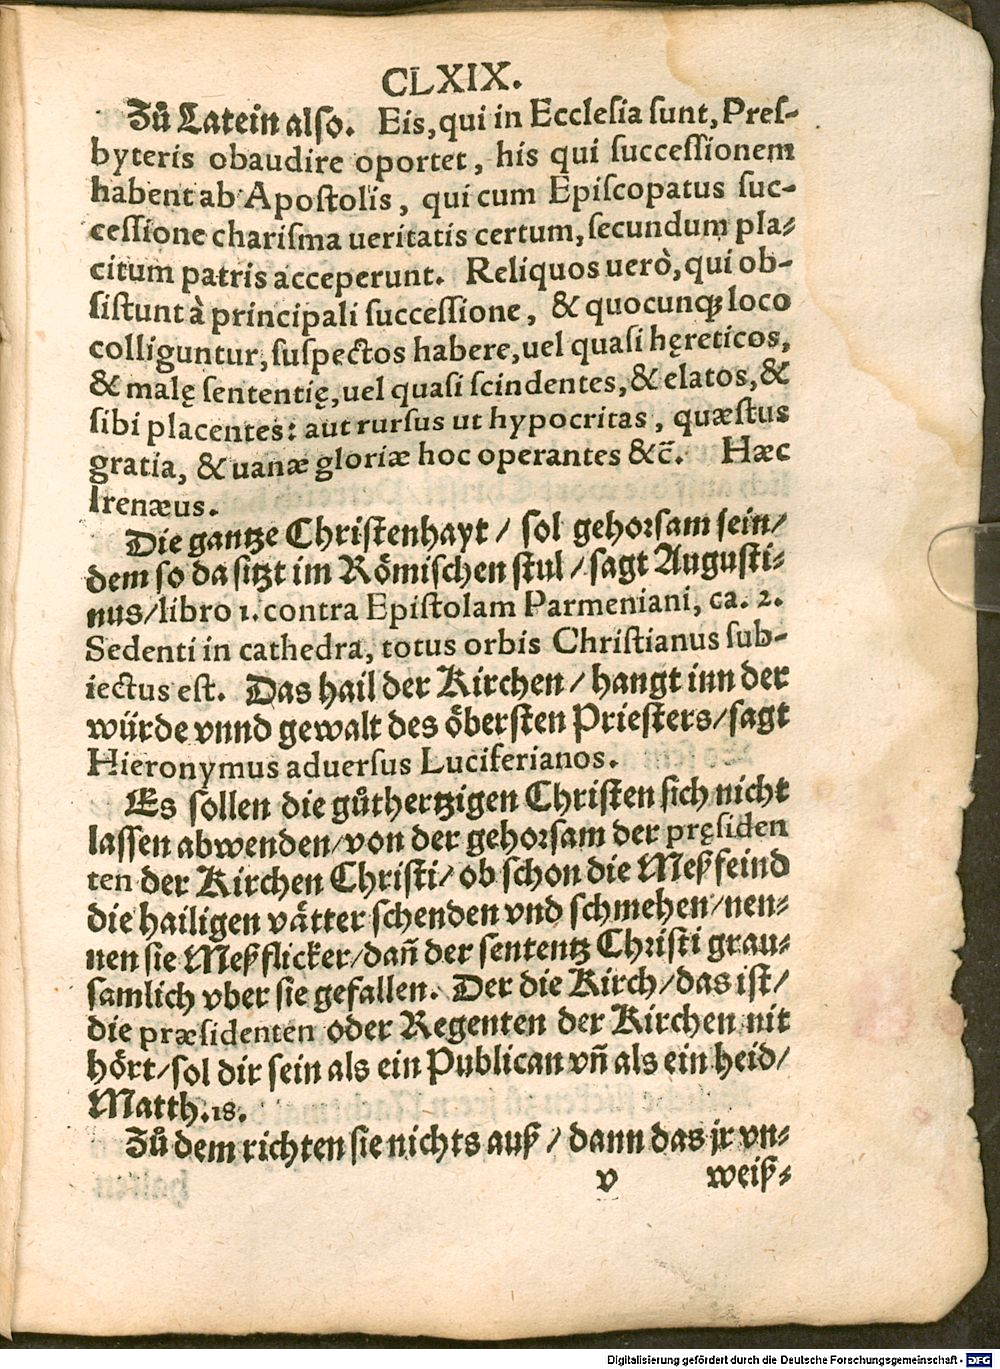 CLXIX.
Zuͦ Latein also. Eis, qui in Ecclesia sunt, Pres-
byteris obaudire oportet, his qui successionem
habent ab Apostolis, qui cum Episcopatus suc-
cessione charisma ueritatis certum, secundum pla-
citum patris acceperunt. Reliquos uerò, qui ob-
sistunt à principali successione, & quocunqꝫ loco
colliguntur, suspectos habere, uel quasi hęreticos,
& malę sententię, uel quasi scindentes, & elatos, &
sibi placentes: aut rursus ut hypocritas, quæstus
gratia, & uanæ gloriæ hoc operantes &c̃. Hæc
Irenæus.
Die gantze Christenhayt / sol gehorsam sein /
dem so da sitzt im Roͤmischen stul / sagt Augusti-
nus / libro 1. contra Epistolam Parmeniani, ca. 2.
Sedenti in cathedra, totus orbis Christianus sub-
iectus est. Das hail der Kirchen / hangt inn der
würde vnnd gewalt des oͤbersten Priesters / sagt
Hieronymus aduersus Luciferianos.
Es sollen die guͦthertzigen Christen sich nicht
lassen abwenden / von der gehorsam der pręsiden
ten der Kirchen Christi / ob schon die Meßfeind
die hailigen vaͤtter schenden vnd schmehen / nen-
nen sie Meßflicker / dañ der sententz Christi grau-
samlich vber sie gefallen. Der die Kirch / das ist /
die præsidenten oder Regenten der Kirchen nit
hoͤrt / sol dir sein als ein Publican vñ als ein heid /
Matth. 18.
Zuͦ dem richten sie nichts auß / dann das jr vn-
v weiß-
Digitalisierung gefördert durch die Deutsche Forschungsgemeinschaft - DFG